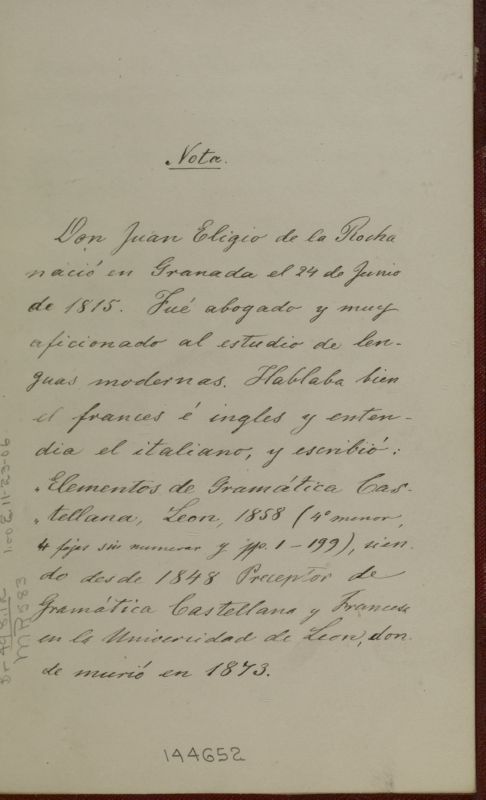 Nota.
Don Juan Eligio de la Rocha
nació en Granada el 24 de Junio
de 1815. Fué abogado y muy
aficionado al estudio de len-
guas modernas. Hablaba bien
el frances é ingles y enten-
dia el italiano, y escribió:
"Elementos de Gramática Cas-
"tellana, Leon, 1858 (4º menor,
4 fojas sin numerar y pp. 1-199), sien-
do desde 1848 Preceptor de
Gramática Castellana y Francesa
en la Universidad de Leon, don-
de murió en 1873.
144652
1.00 € 11-23-06
M A583